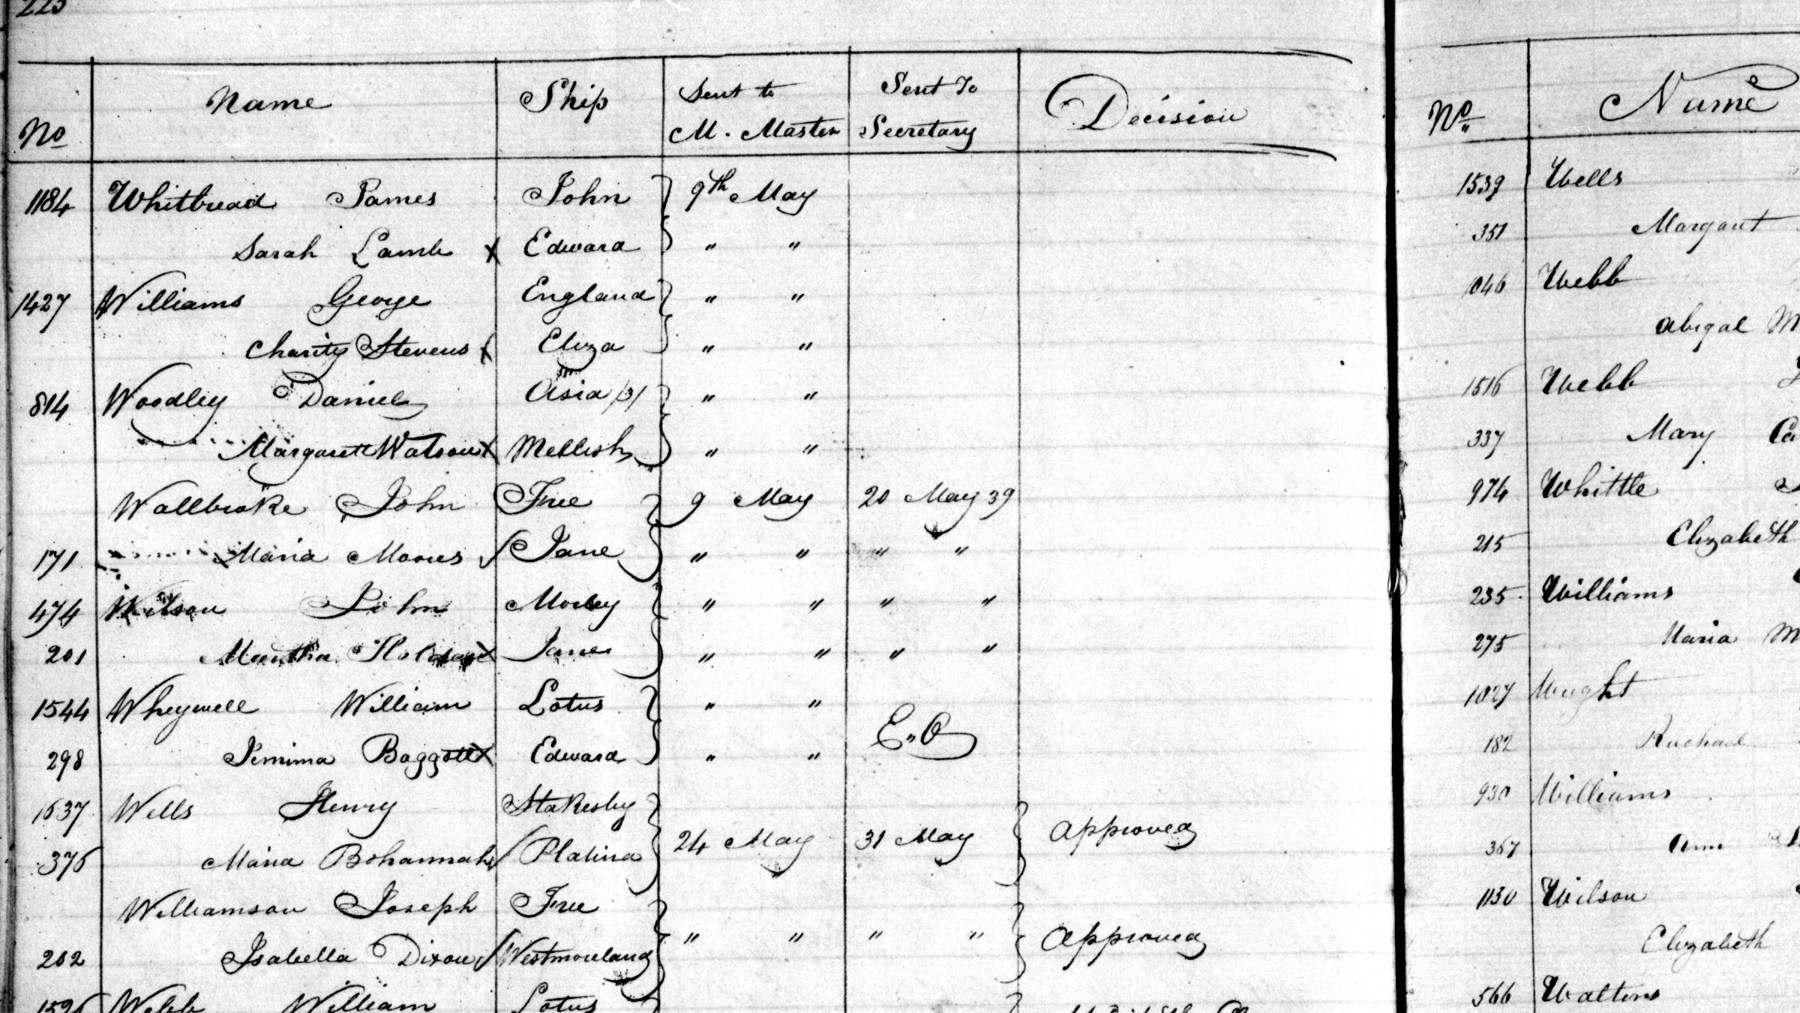 225
No Name Ship Sent to M. Master Sent To Secretary Decision
1184 Whitbread James John 9th May
Sarah Lamb x Edward " "
1427 Williams George England " "
Charity Stevens Eliza " "
814 Woodley Daniel Asia /3/ " "
Margarett Watson x Mellish " "
Wallbroke John Free 9 May 20 May 39
171 Maria Moores Jane " " " "
474 Wilson John Morley " " " "
201 Martha Jane " " " "
1544 Wheywell William Lotus " "
E.O
298 Jemima Baggott x Edward " "
1637 Wells Henry Stakesby
376 Maria Bohannah Platina 24 May 31 May Approved
Williamson Joseph Free
202 Isabella Dixon Westmoreland " " " " Approved
Webb William Lotus
No Name
1539 Wells
351 Margaret
1046 Webb
Abigal M
1516 Webb
337 Mary Ca
974 Whittle
215 Elizabeth
235 Williams
275 Maria M
1027 Wright
182 Rachael
930 Williams
367 Ann
1130 Wilson
Elizabeth
566 Walters